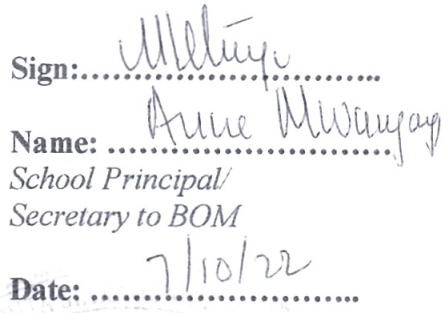 Sign:..........................
Name: Anne Mwangang
School Principal/
Secretary to BOM
Date: 7/10/22